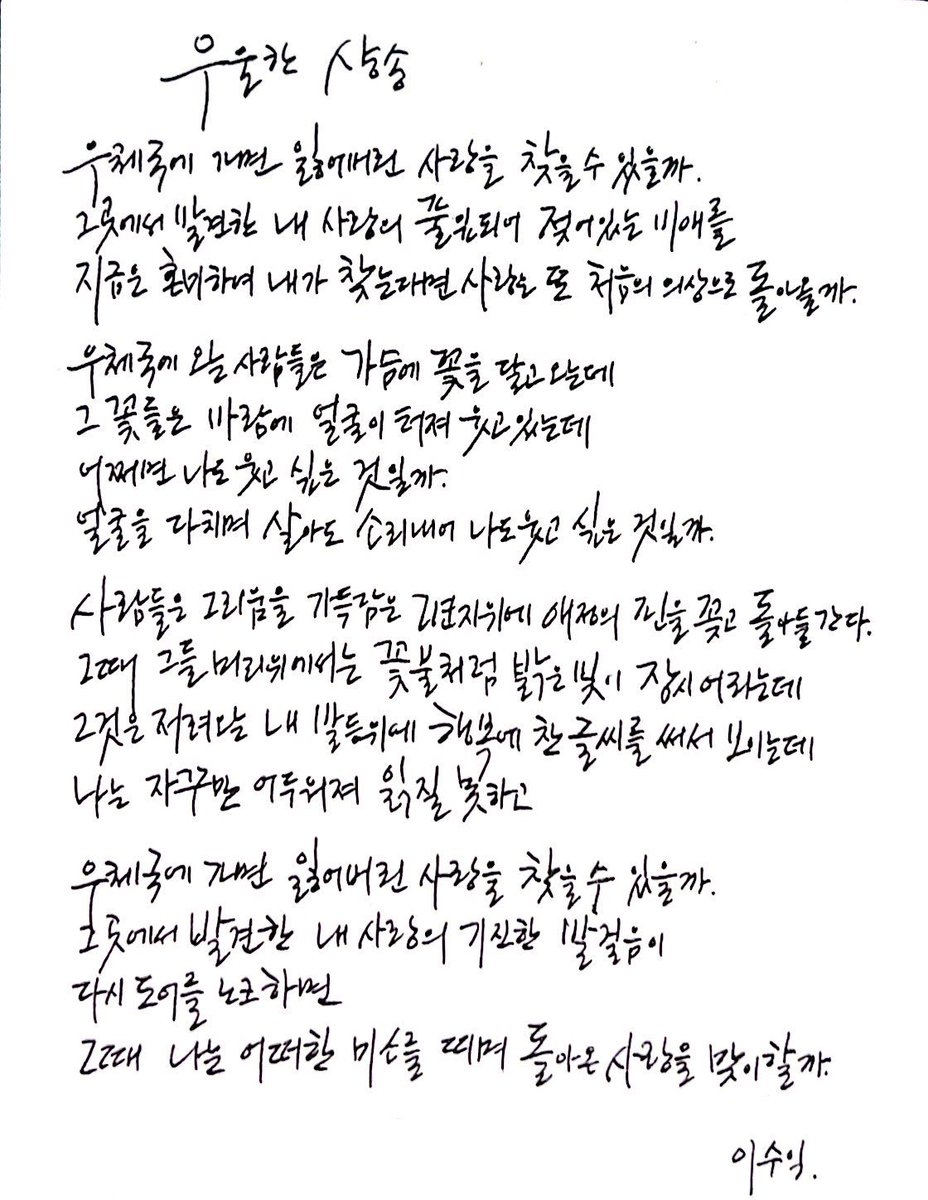 우울한 샹송
우체국에 가면 잃어버린 사랑을 찾을 수 있을까.
그곳에서 발견한 내 사랑의 풀잎되어 젖어있는 비애를
지금은 혼미하여 내가 찾는다면 사랑은 또 처음의 의상으로 돌아올까.
우체국에 오는 사람들은 가슴에 꽃을 달고 오는데
그 꽃들은 바람에 얼굴이 터져 웃고 있는데
어쩌면 나도 웃고 싶은 것일까.
얼굴을 다치며 살아도 소리내어 나도 웃고 싶은 것일까.
사람들은 그리움을 가득담은 편지위에 애정의 핀을 꽂고 돌아들 간다.
그때 그들 머리위에서는 꽃불처럼 밝은 빛이 잠시 어리는데
그것은 저려오는 내 발등위에 행복에 찬 글씨를 써서 보이는데
나는 자꾸만 어두워져 읽질 못하고
우체국에 가면 잃어버린 사랑을 찾을 수 있을까.
그곳에서 발견한 내 사랑의 기진한 발걸음이
다시 도어를 노크하면
그때 나는 어떠한 미소를 띠며 돌아온 사랑을 맞이할까.
이수익.